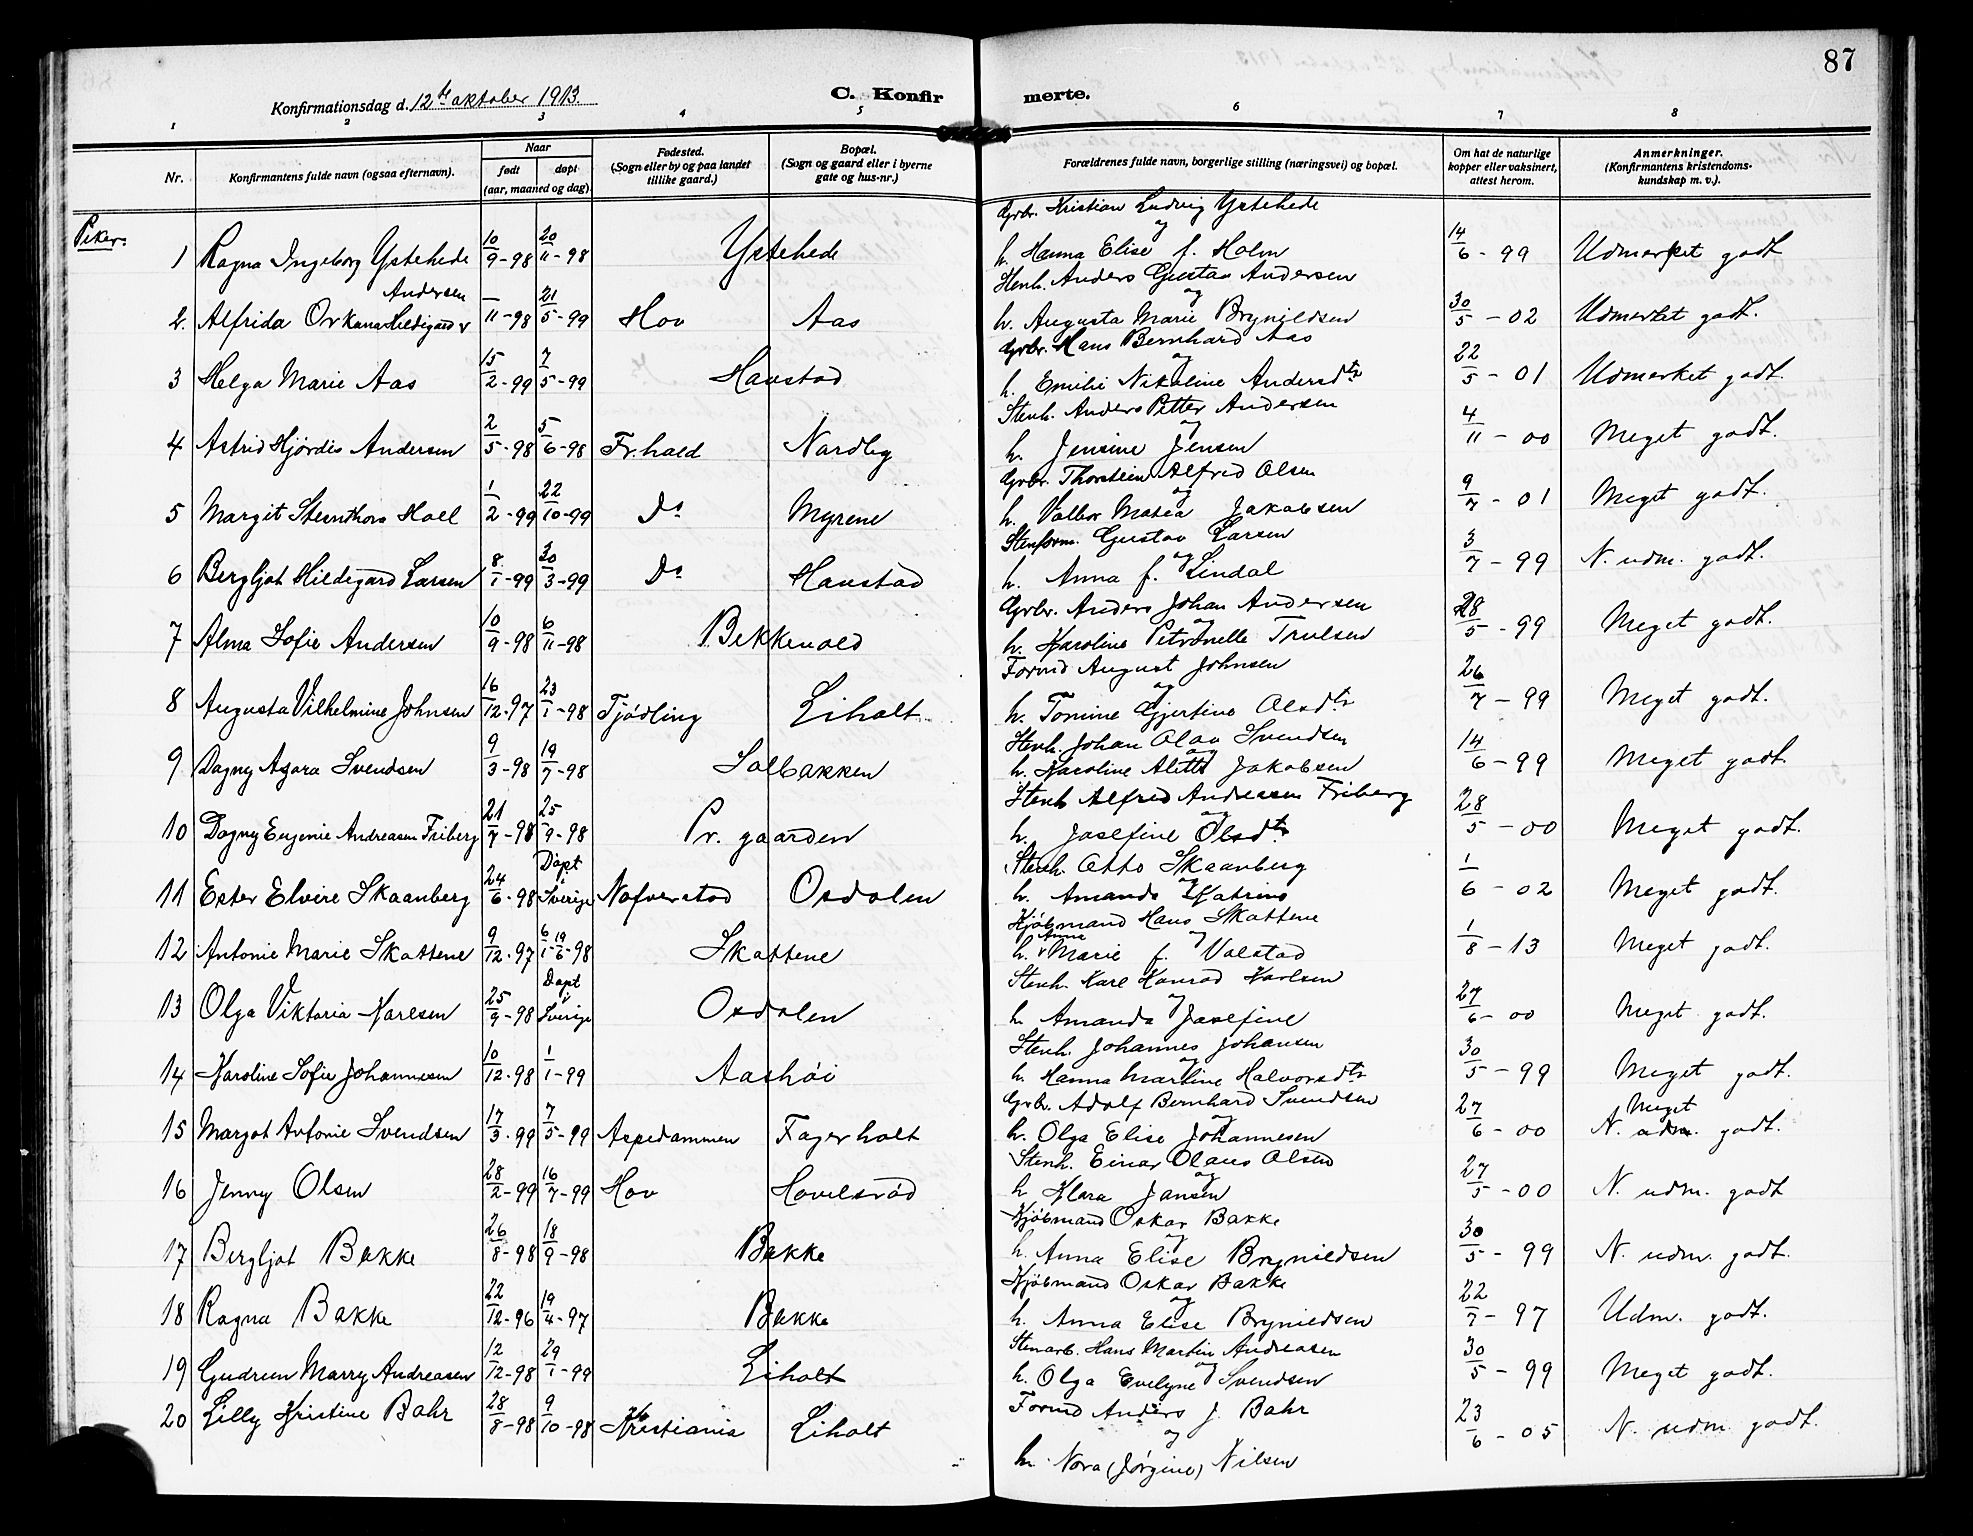 87
Konfirmationsdag d. 12te oktober 1913.
C. Konfirmerte.
1 2 3 4 5 6 7 8
Nr.
Konfirmantens fulde navn (ogsaa efternavn).
Naar
født
døpt
(aar, maaned og dag).
Fødested.
(Sogn eller by og paa landet
tillike gaard.)
Bopæl.
(Sogn og gaard eller i byerne
gate og hus-nr.)
Forældrenes fulde navn, borgerlige stilling (næringsvei) og bopæl.
Om hat de naturlige
kopper eller vaksinert,
attest herom.
Anmerkninger.
(Konfirmantens kristendoms-
kundskap m. v.).
Piker:
Grbr. Kristian Ludvig Ystehede
og
1 Ragna Ingeborg Ystehede 10/9-98 20/11-98 Ystehede h. Hanna Elise f. Holm 14/6-99 Udmerket godt
Andersen
Stenh. Anders Gustav Andersen
og
2. Alfrida Hildegard –/11-98 21/5-99 Hov Aas h. Augusta Marie Brynildsen 30/5-02 Udmerket godt.
Grbr. Hans Bernhard Aas
og
3 Helga Marie Aas 15/2-99 7/5-99 Haustad h. Emilie Nikoline Andersdtr 22/5-01 Udmerket godt.
Stenh. Anders Petter Andersen
og
4 Astrid Hjördis Andersen 2/5-98 5/6-98 Fr.hald Nordby h. Jensine Jensen 4/11-00 Meget godt.
Grbr. Thorstein Alfred Olsen
og
5 Margit Hoel 1/2-99 22/10-99 Do Myrene h. Valbor Matea Jakobsen 9/7-01 Meget godt.
Stenform. Gustav Larsen
og
6 Bergljot Hildegard Larsen 8/1-99 30/3-99 Do Haustad h. Anna f. Lindal 3/7-99 N. udm. godt.
Grbr. Anders Johan Andersen
og
7 Alma Sofie Andersen 10/9-98 6/11-98 Bekkevold h. Karoline Petronelle Trulsen 28/5-99 Meget godt.
Formd August Johnsen
og
8 Augusta Vilhelmine Johnsen 16/12-97 23/1-98 Tjödling Liholt h. Tomine Gjertine Olsdtr 26/7-99 Meget godt.
Stenh. Johan Olav Svendsen
og
9 Dagny Agara Svendsen 9/3-98 19/7-98 Solbakken h. Karoline Alette Jakobsen 14/6-99 Meget godt.
Stenh Alfred Andreasen Friberg
og
10 Dagny Eugenie Andreasen Friberg 21/7-98 25/9-98 Pr. gaarden h. Josefine Olsdtr 28/5-00 Meget godt.
Døpt
i
Stenh. Otto Skaanberg
og
11 Ester Elvire Skaanberg 24/6-98 Sverige Nafverstad Osdalen h. Amanda Katrine 1/6-02 Meget godt.
Kjöbmand Hans Skattene
Anna og
12 Antonie Marie Skattene 9/12-97 6/1-19/6-98 Skattene h. Marie f. Valstad 1/8-13 Meget godt.
Døpt
i
Stenh. Karl Konrad Karlsen
og
13 Olga Viktoria Karlsen 25/9-98 Sverige Osdalen h. Amanda Josefine 27/6-00 Meget godt.
Stenh. Johannes Johansen
og
14 Karoline Sofie Johannesen 10/12-98 1/1-99 Aashöi h. Hanna Martine Halvorsdtr 30/5-99 Meget godt.
Grbr. Adolf Bernhard Svendsen
og Meget
15 Margot Antonie Svendsen 17/3-99 7/5-99 Aspedammen Fagerholt h. Olga Elise Johannesen 27/6-00 N. udm. godt.
Stenh. Einar Olaus Olsen
og
16 Jenny Olsen 28/2-99 16/7-99 Hov Hovelsröd h Klara Jansen 27/5-00 N. udm. godt
Kjöbmand Oskar Bakke
og
17 Bergljot Bakke 26/8-98 18/9-98 Bakke h. Anna Elise Brynildsen 30/5-99 N. udm. godt.
Kjöbmand Oskar Bakke
og
18 Ragna Bakke 22/12-96 19/4-97 Bakke h. Anna Elise Brynildsen 22/7-97 Udm. godt.
Stenarb. Hans Martin Andreasen
og
19 Gudrun Marry Andreasen 12/12-98 29/1-99 Liholt h. Olga Evelyne Svendsen 30/5-99 Meget godt.
Formd Anders J. Bahr
og
20 Lilly Kristine Bahr 28/8-98 9/10-98 Kristiania Liholt h. Nora (Jörgine) Nilsen 23/6-05 N. udm godt.